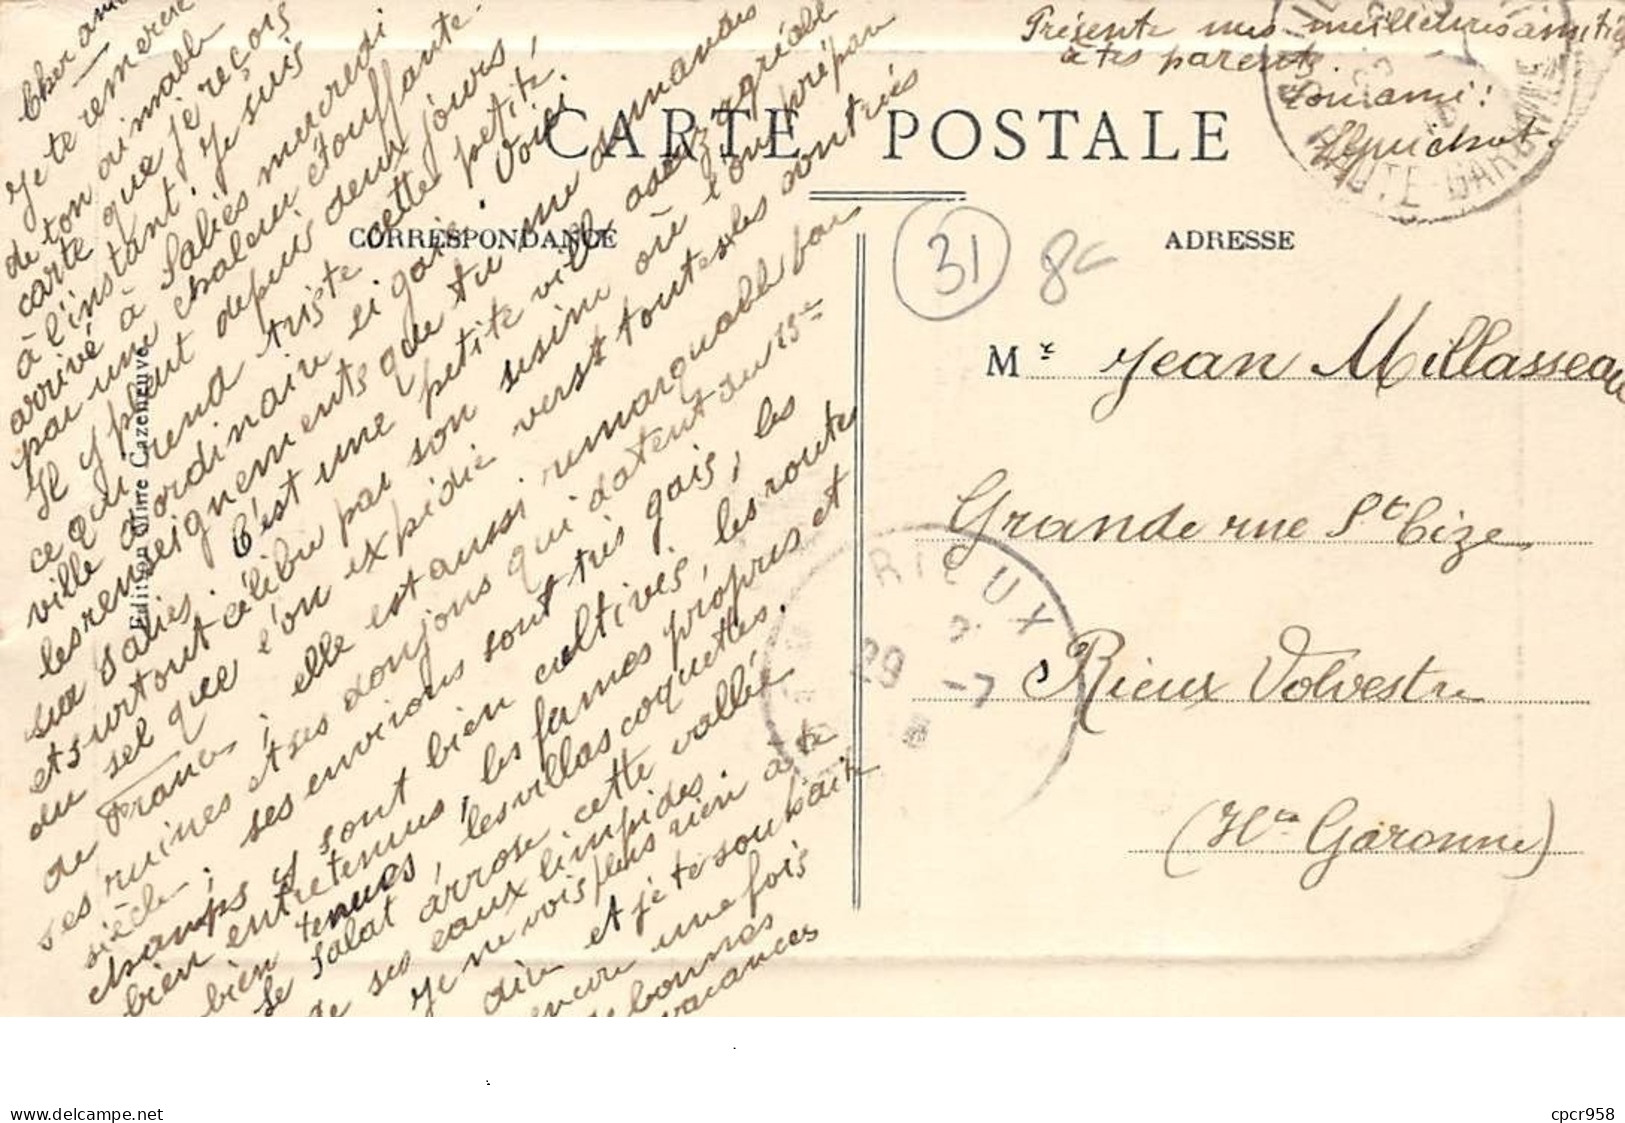 Cher ami
Je te remercie
de ton aimable
carte que je reçois
à l'instant. Je suis
arrivé à Salies mercredi
par une chaleur étouffante.
Il y pleut depuis deux jours,
ce qui rend triste cette petite
ville d'ordinaire si gaie. Voici
les renseignements que tu me demandes
sur Salies. C'est une petite ville assez agréable
et surtout célèbre par son usine où l'on prépare
du sel que l'on expédie vers toutes les contrées
de France ; elle est aussi remarquable par
ses ruines et ses donjons qui datent du 13e
siècle ; ses environs sont très gais, les
champs y sont bien cultivés, les routes
bien entretenues, les fermes propres et
bien tenues, les villas coquettes.
Le Salat arrose cette vallée
de ses eaux limpides.
Je ne vois plus rien à te
dire et je te souhaite
encore une fois
de bonnes
vacances
Présente mes meilleures amitiés
à tes parents.
Ton ami :
CARTE POSTALE
CORRESPONDANCE
ADRESSE
31
8c
HAUTE-GARONNE
Mr Jean Millasseau
Grande rue St Cize
Rieux Volvestre
(Hte Garonne)
RIEUX
29 -7
Edition Mme Cazeneuve
delcampe.net
cpcr958